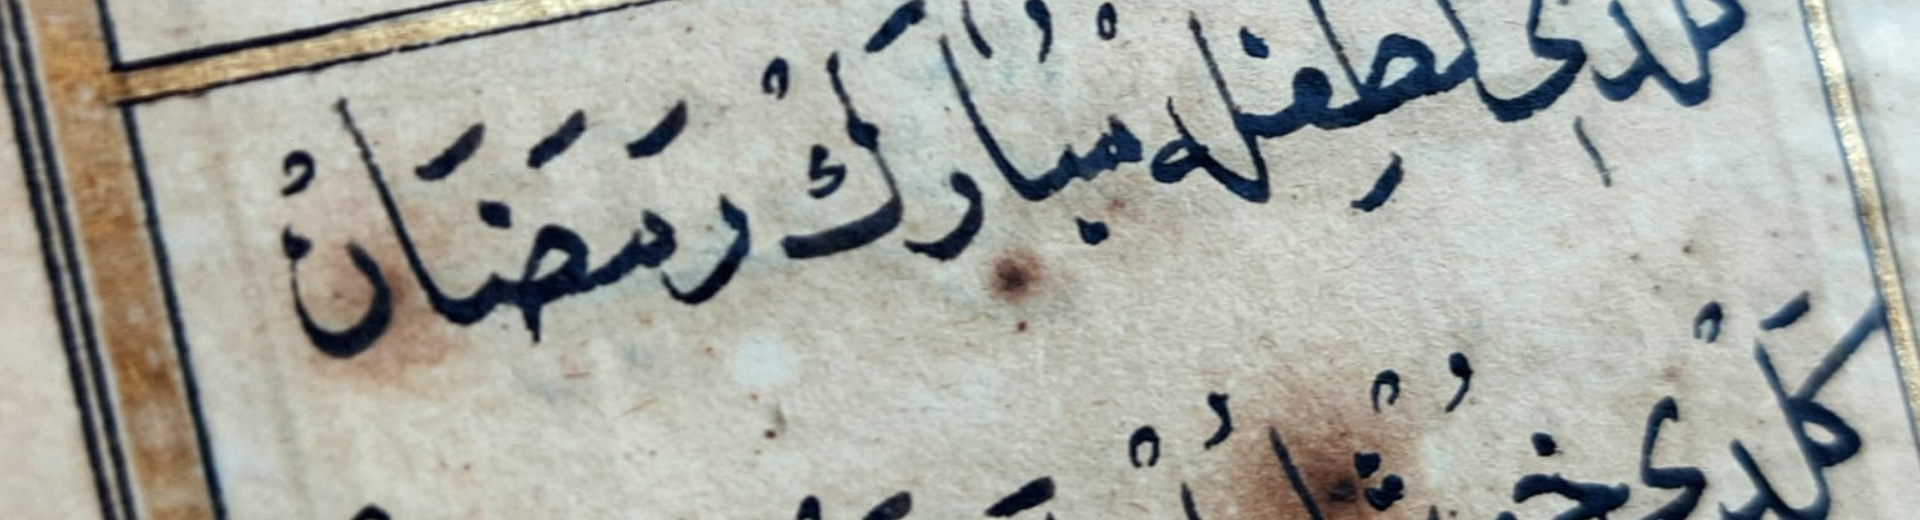 كلدى لطفله مبارك رمضان
كلدى خوش